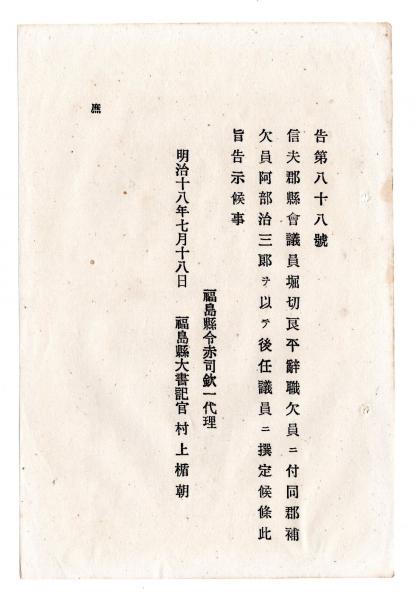 告第八十八號
信夫郡縣會議員堀切良平辭職欠員ニ付同郡補
欠員阿部治三郎ヲ以テ後任議員ニ撰定候條此
旨告示候事
福島縣令赤司欽一代理
明治十八年七月十八日　福島縣大書記官村上楯朝
庶